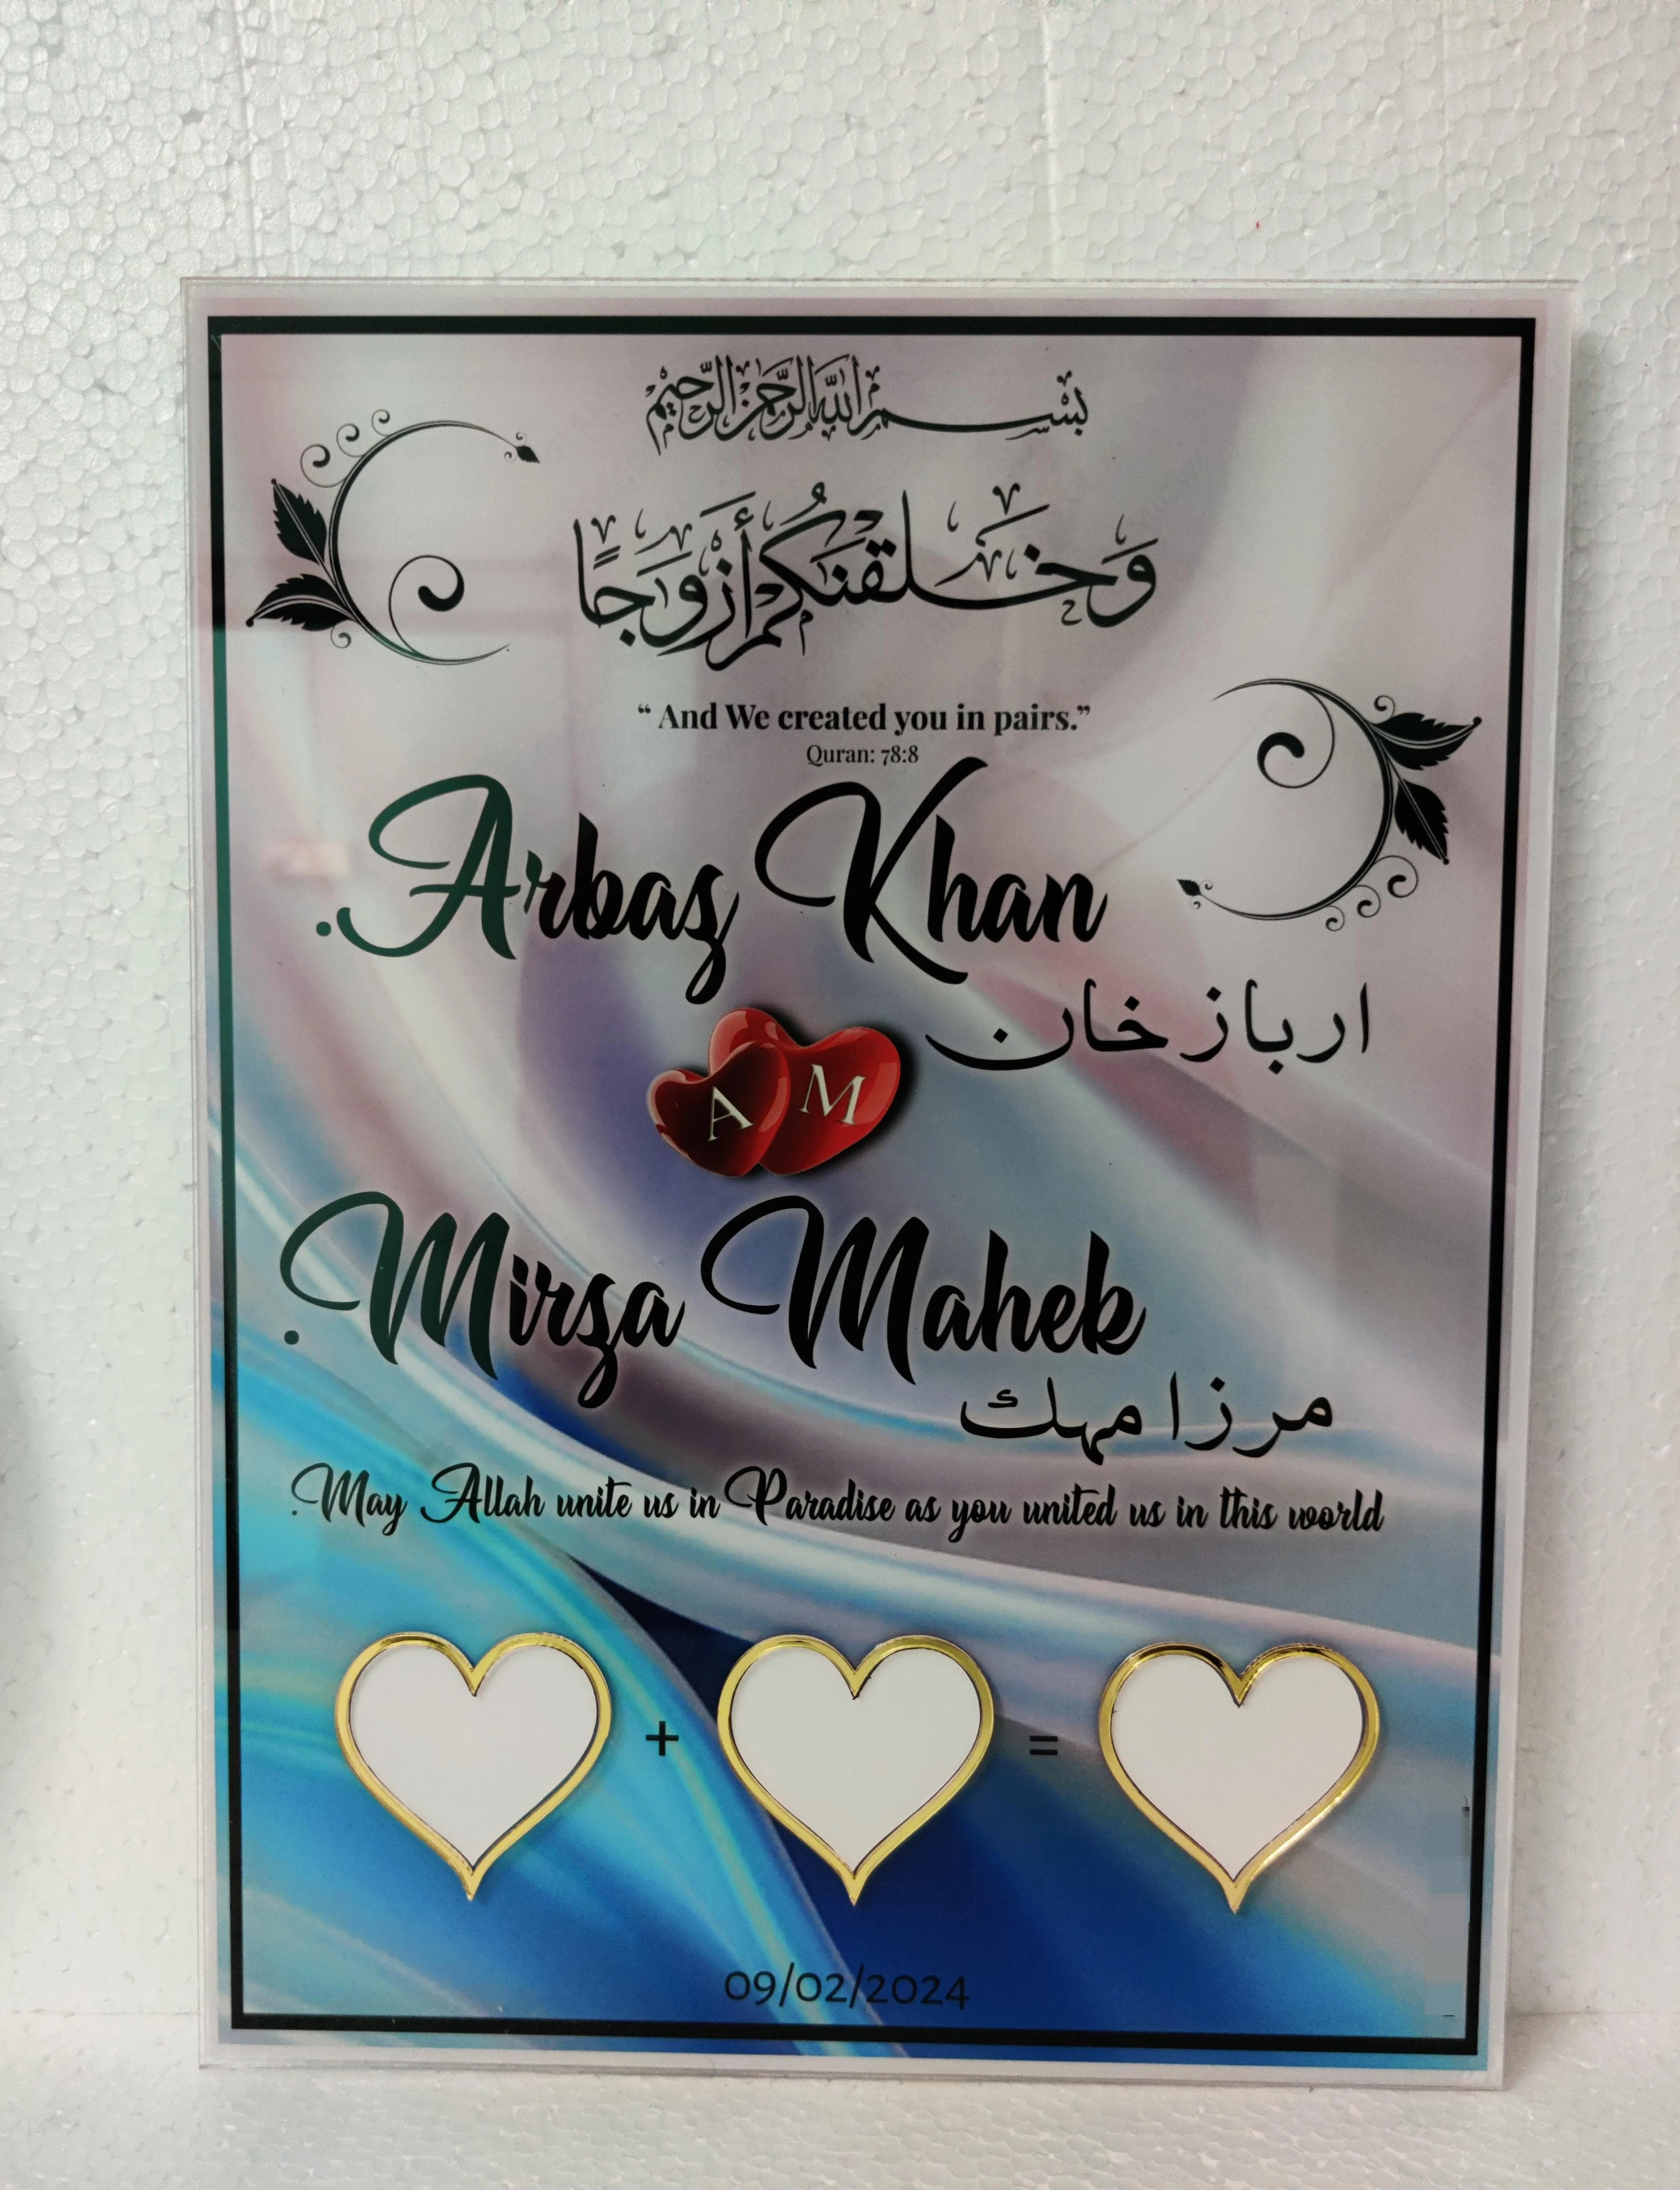 بِسْمِ اللَّهِ الرَّحْمَٰنِ الرَّحِيمِ
وَخَلَقْنَٰكُمْ أَزْوَٰجًا
“ And We created you in pairs.”
Quran: 78:8
.Arbaz Khan
ارباز خان
A M
.Mirza Maheb
مرزا مهك
.May Allah unite us in Paradise as you united us in this world
+ =
09/02/2024